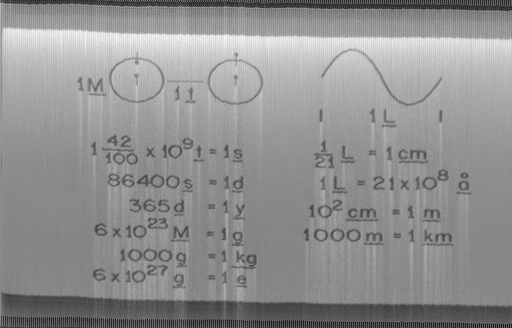 1M 1t
1 42/100 x 10⁹ t = 1s
86400s = 1d
365d = 1y
6 x 10²³ M = 1g
1000g = 1kg
6 x 10²⁷ g = 1e
1L
1/21 L = 1cm
1L = 21 x 10⁸ å
10² cm = 1m
1000m = 1km